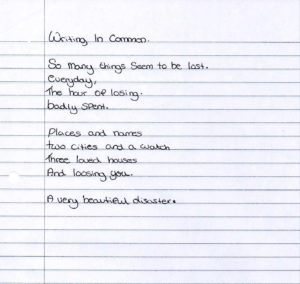 Writing In Common.
So many things seem to be lost.
everyday,
The hour of losing.
badly spent.
Places and names
two cities and a watch
Three loved houses
And loosing you.
A very beautiful disaster.